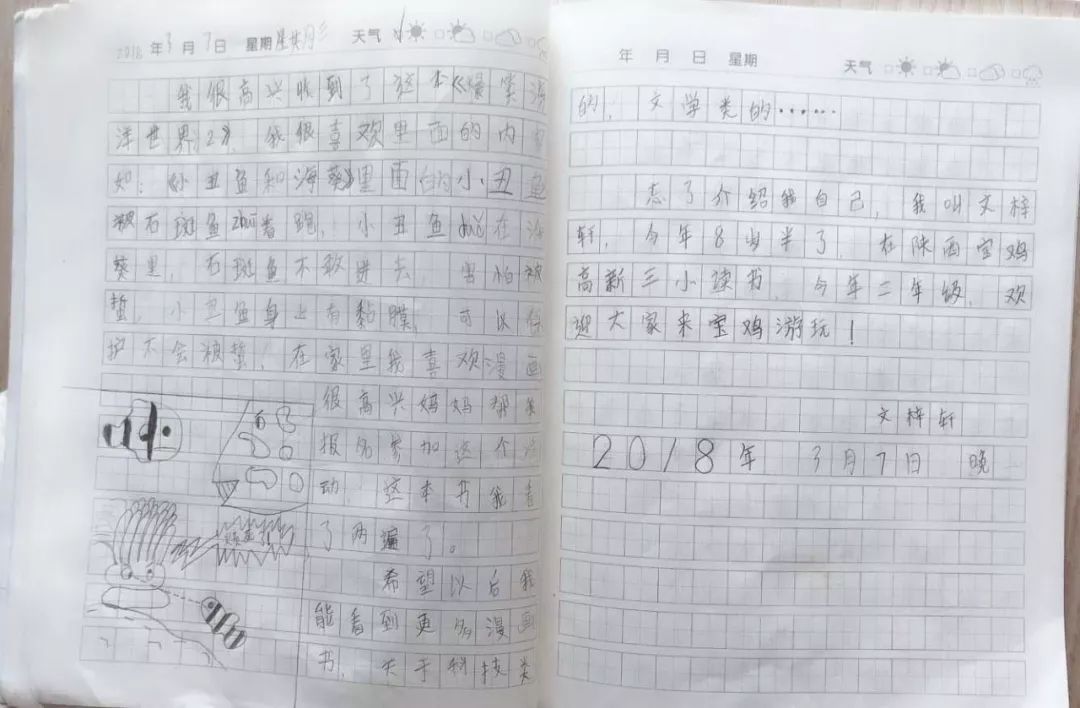 2018年3月7日 星期 星其月三 天气
我很高兴收到了这本《爆笑海
洋世界2》，我很喜欢里面的内
如：《小丑鱼和海葵》里面的小丑鱼
被石斑鱼zhuī着跑，小丑鱼duǒ在海
葵里，石斑鱼不敢进去，害怕被
蜇，小丑鱼身上有黏膜，可以保
护不会被蜇，在家里我喜欢漫画
很高兴妈妈帮我
报名参加这个活
动，这本书我看
了两遍了。
希望以后我
能看到更多漫画
书，关于科技类
年 月 日 星期 天气
的，文学类的……
忘了介绍我自己，我叫文梓
轩，今年8岁半了，在陕西宝鸡
高新三小读书，今年二年级，欢
迎大家来宝鸡游玩！
文梓轩
2018年 3月7日 晚